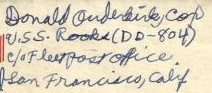 Donald Onderkirk, Cox
U.S.S. Rooks (DD-804)
c/o Fleet Post Office.
San Francisco, Calif